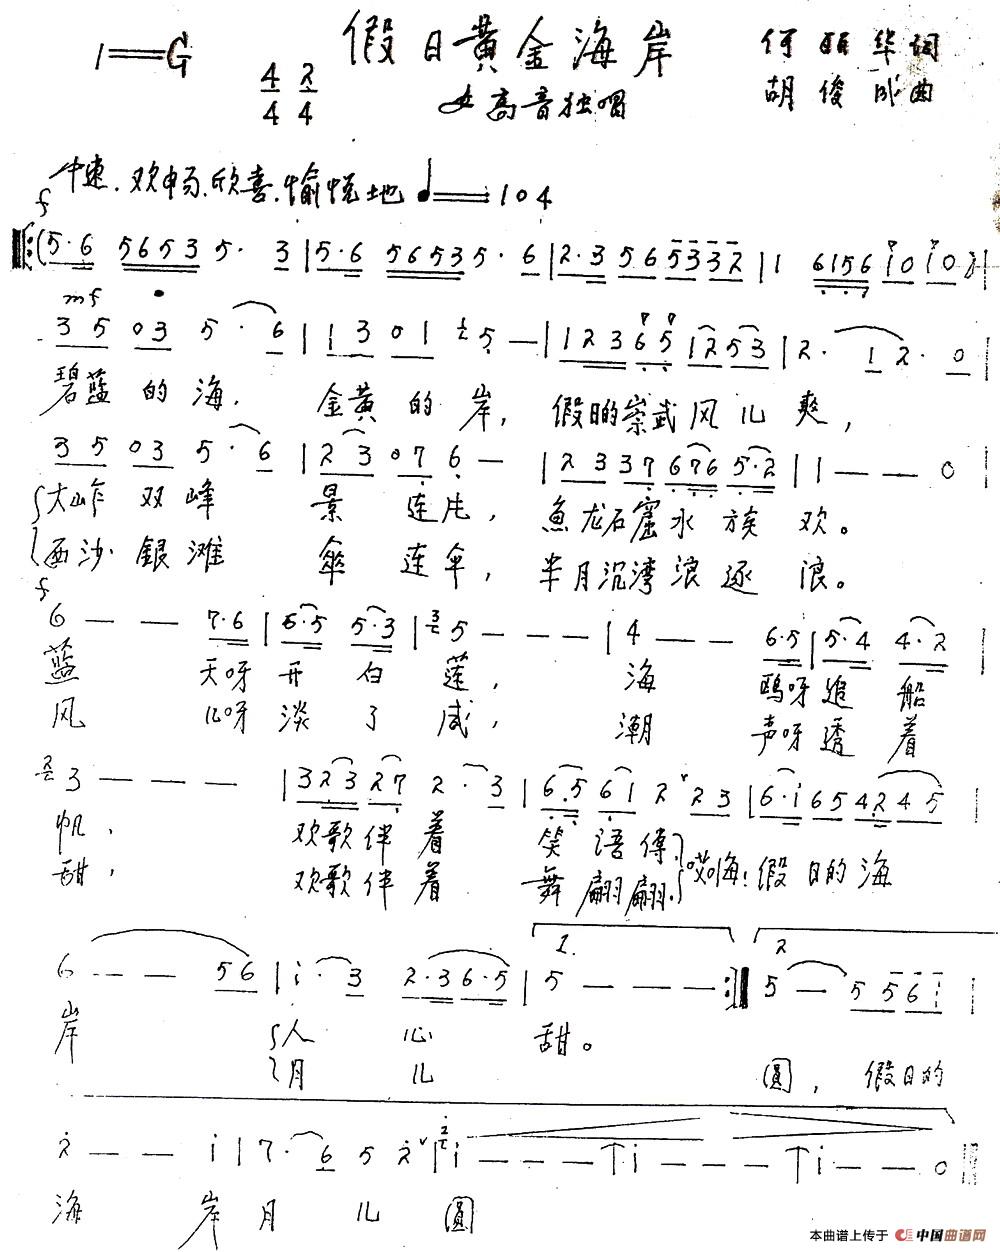 假日黄金海岸
1=G 4/4 2/4
女高音独唱
何 华词
胡俊成曲
中速.欢畅.欣喜.愉悦地 ♩=104
f
(5·6 5653 5· 3 | 5·6 5653 5· 6 | 2·3 56 5332 | 1 6156 i0 i0 )
mf
3 5 03 5· 6 | 1 3 0 1 5 — | 1 2 3 6 5 12 53 | 2· 1 2· 0 |
碧蓝的海. 金黄的岸, 假日的崇武风儿爽,
3 5 03 5· 6 | 2 3 0 7 6 — | 2 3 3 7 676 5·2 | 1 — — 0
大岞双峰 景连片, 魚龙石窟水族欢。
西沙銀滩 傘连伞, 半月沉湾浪逐浪。
f
6 — — 7·6 | 6·5 5·3 | 3 5 — — — | 4 — — 6·5 | 5·4 4·2 |
蓝 天呀开白莲, 海 鸥呀追船
风 儿呀淡了咸, 潮 声呀透着
2 3 — — — | 3 2 3 2 7 2· 3 | 6·5 6 1 2 2 3 | 6·i 6 5 4 2 4 5 |
帆, 欢歌伴着 笑语传. 哎嗨!假日的海
甜, 欢歌伴着 舞翩翩.
1. 2
6 — — 5 6 | i· 3 2·3 6·5 | 5 — — — :| 5 — 5 5 6 i |
岸 人心 甜。
月儿 圆, 假日的
2 — — i | 7· 6 5 2 | 2 i — — — | i — — — | i — — 0
海 岸月儿圆
本曲谱上传于 中国曲谱网